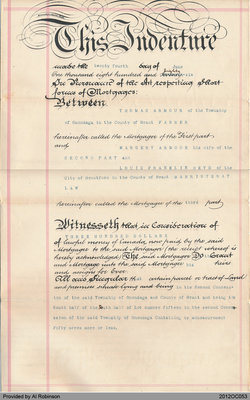 This Indenture
made the twenty fourth day of June
One thousand eight hundred and
In Pursuance of the Act respecting Short
forms of Mortgages:
Between
THOMAS ARMOUR of the Township
of Onondaga in the County of Brant FARMER
hereinafter called the Mortgagor of the First part
and MARGERY ARMOUR his wife of the
SECOND PART and
LOUIS FRANKLIN HEYD of the
City of Brantford in the County of Brant BARRISTER AT
LAW
hereinafter called the Mortgagee of the third part
Witnesseth that in Consideration of
THREE HUNDRED DOLLARS
of lawful money of Canada, now paid by the said
Mortgagee to the said Mortgagor (the receipt whereof is
hereby acknowledged) The said Mortgagor Do Grant
and Mortgage unto the said Mortgagee his heirs
and assigns for Ever
All and Singular that certain parcel or tract of Land
and premises situate lying and being in the Second Conces-
sion of the said Township of Onondaga and County of Brant and being
South half of the half of Lot number fifteen in the second Conces-
sion of the said Township of Onondaga Containing by admeasurement
fifty acres more or less.
Provided by Al Robinson
2012OC053